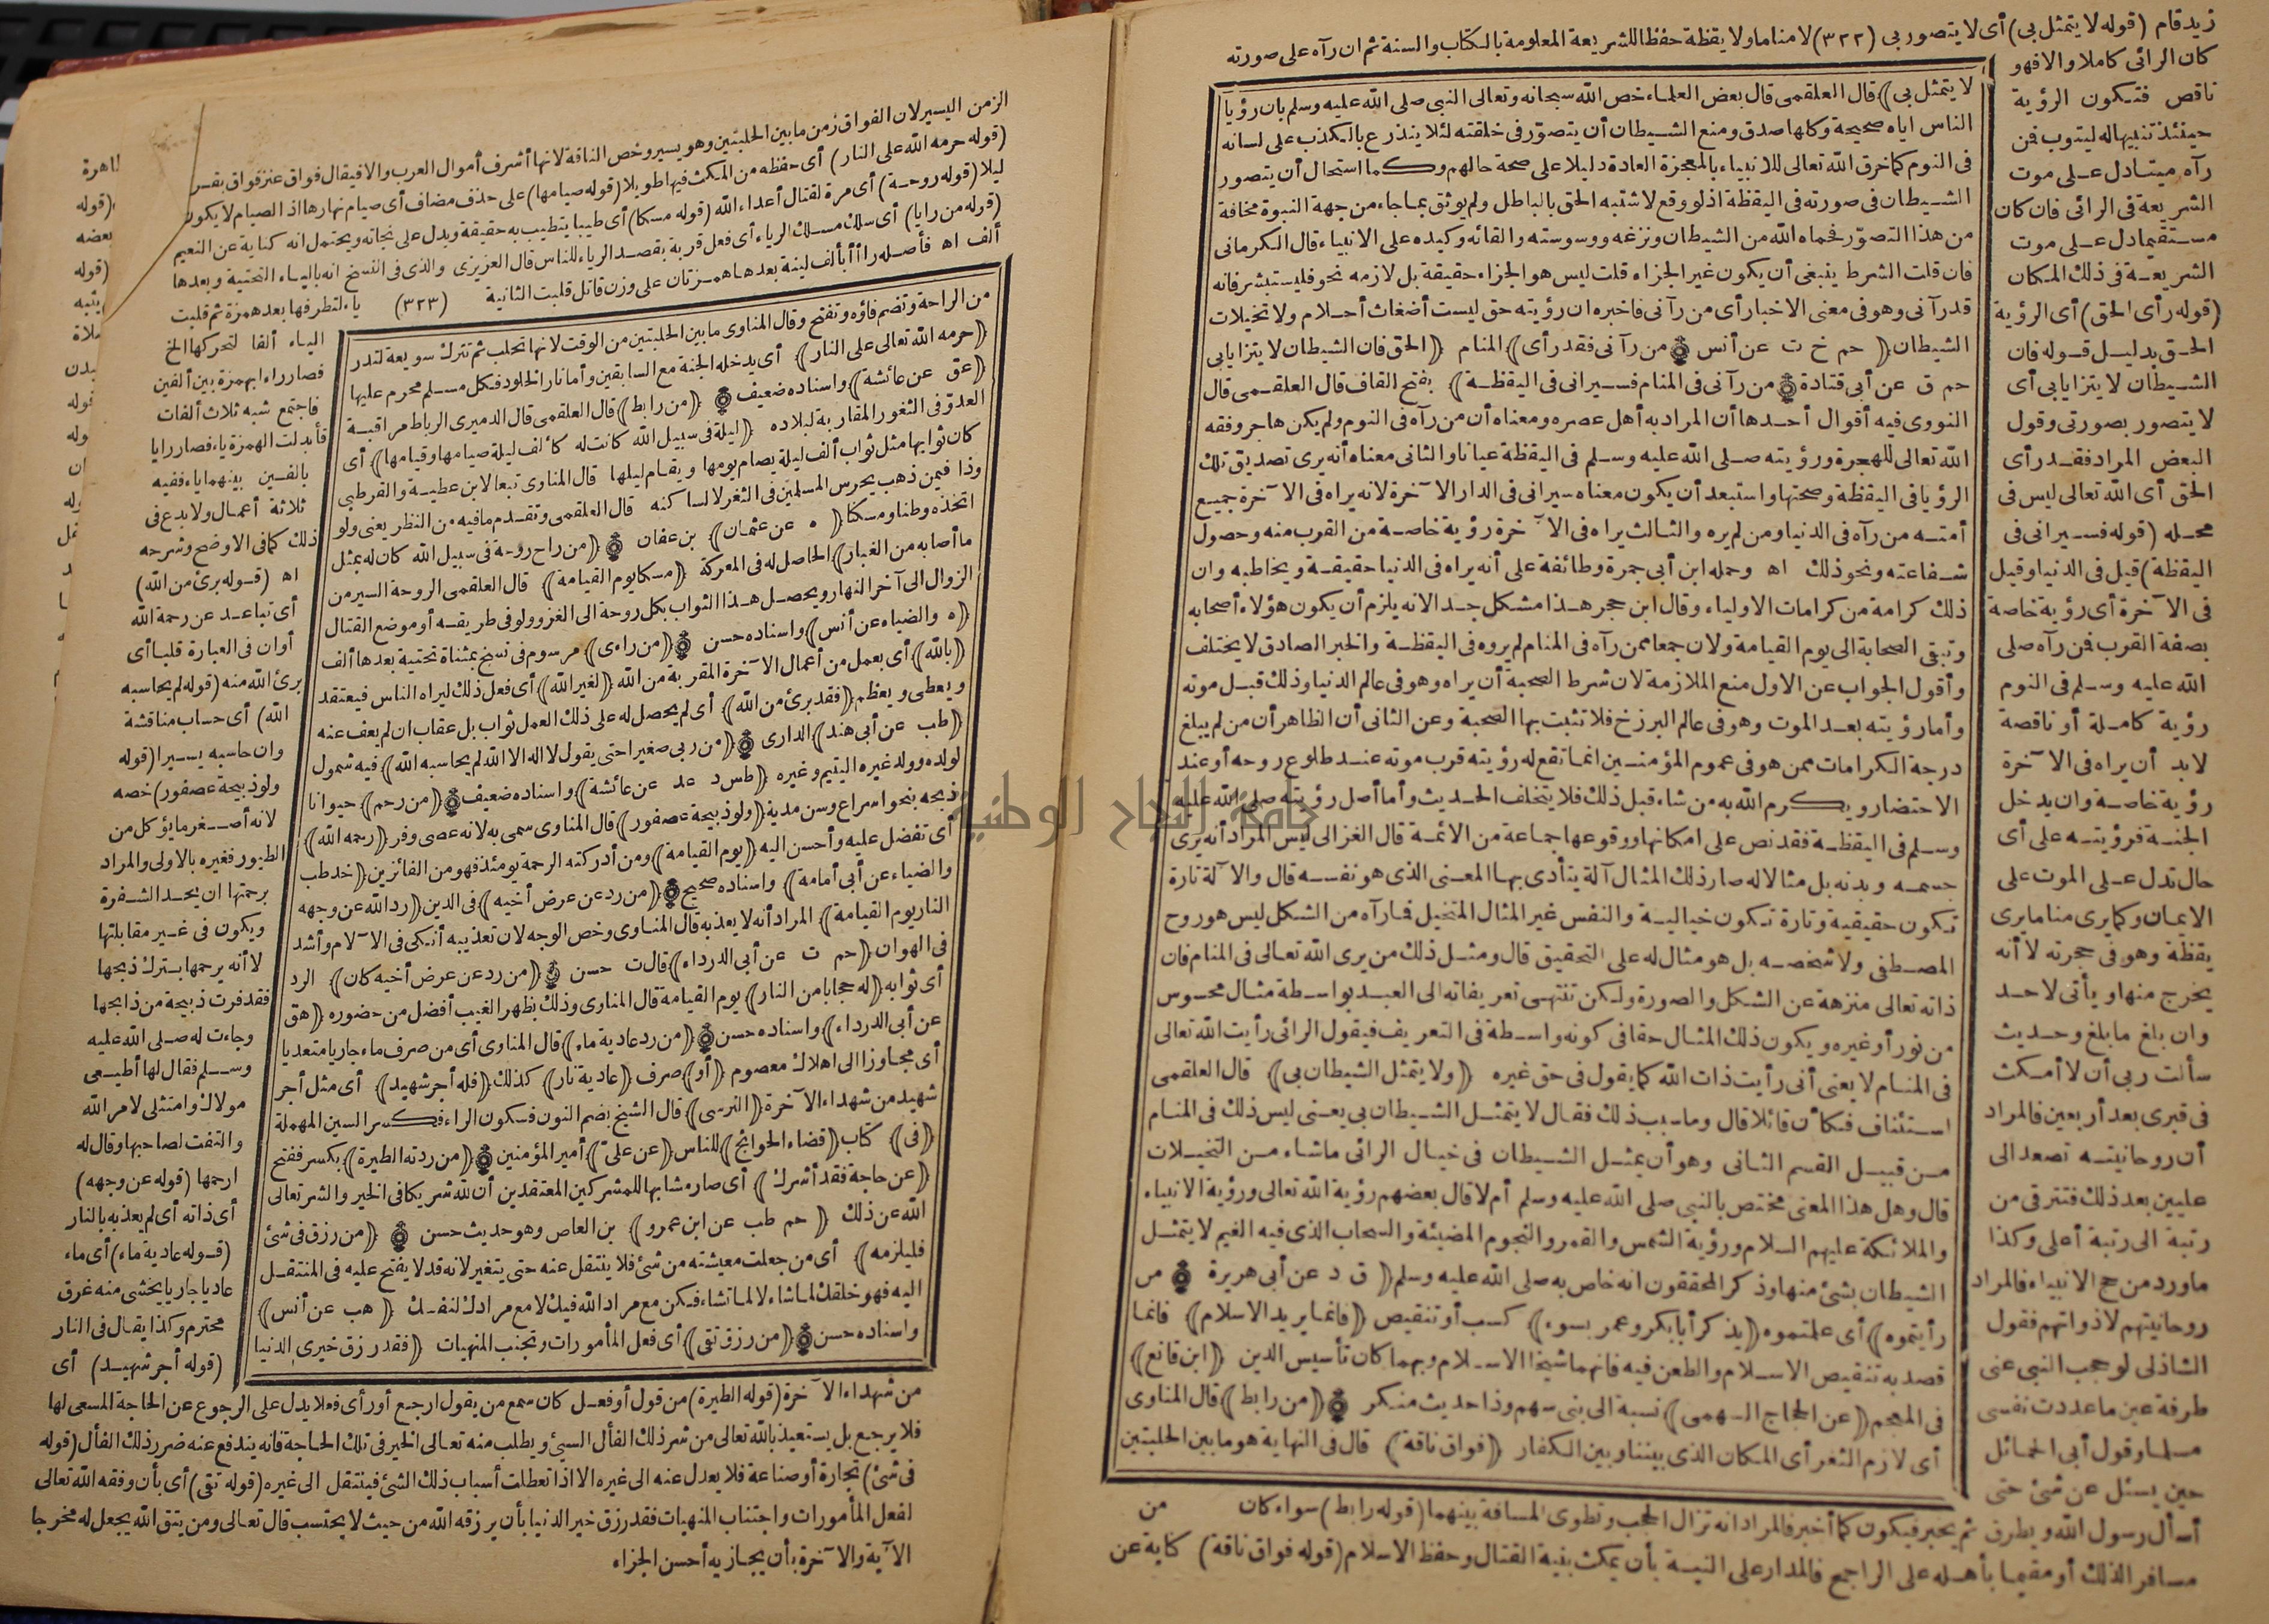 زيد قام (قوله لا يتمثل بى) أى لا يتصور بى (٣٢٢) لا مناما ولا يقظة حفظا للشريعة المعلومة بالكتاب والسنة ثم ان رآه على صورته
كان الرائى كاملا والا فهو
ناقص فتكون الرؤية
حينئذ تنبيها له ليتوب فن
رآه ميتا دل على موت
الشريعة فى الرائى فان كان
مستقيما دل على موت
الشريعة فى ذلك المكان
(قوله رأى الحق) أى الرؤية
الحق بدليل قوله فان
الشيطان لا يتزايا بى أى
لا يتصور بصورتى وقول
البعض المراد فقد رأى
الحق أى الله تعالى ليس فى
محله (قوله فسيرانى فى
اليقظة) قيل فى الدنيا وقيل
فى الآخرة أى رؤية خاصة
بصفة القرب فن رآه صلى
الله عليه وسلم فى النوم
رؤية كاملة أو ناقصة
لابد أن يراه فى الآخرة
رؤية خاصة وان يدخل
الجنة فرؤيته على أى
حال تدل على الموت على
الايمان وكما يرى مناما يرى
يقظة وهو فى حجرته لا أنه
يخرج منها ويأتى لاحد
وان بلغ ما بلغ وحديث
سألت ربى أن لا أمكث
فى قبرى بعد أربعين فالمراد
أن روحانيته تصعد الى
عليين بعد ذلك فتترقى من
رتبة الى رتبة أعلى وكذا
ما ورد من حج الانبياء فالمراد
روحانيتهم لا ذواتهم فقول
الشاذلى لو حجب النبى عنى
طرفة عين ما عددت نفسى
مسلما وقول أبى الحمائل
حين يسئل عن شئ حتى
لا يتمثل بى) قال العلقمى قال بعض العلماء خص الله سبحانه وتعالى النبى صلى الله عليه وسلم بان رؤيا
الناس اياه صحيحة وكلها صدق ومنع الشيطان أن يتصور فى خلقته لئلا يتدرع بالكذب على لسانه
فى النوم كما خرق الله تعالى للانبياء بالمعجزة العادة دليلا على صحة حالهم وكما استحال أن يتصور
الشيطان فى صورته فى اليقظة اذ لو وقع لاشتبه الحق بالباطل ولم يوثق بما جاء من جهة النبوة مخافة
من هذا التصور فحماه الله من الشيطان ونزغه ووسوسته والقائه وكيده على الانبياء قال الكرمانى
فان قلت الشرط ينبغى أن يكون غير الجزاء قلت ليس هو الجزاء حقيقة بل لازمه نحو فليستبشر فانه
قد رآنى وهو فى معنى الاخبار أى من رآنى فاخبره ان رؤيته حق ليست أضغاث أحلام ولا تخيلات
الشيطان (حم خ ت عن أنس من رآنى فقد رأى) المنام (الحق فان الشيطان لا يتزايا بى
حم ق عن أبى قتادة من رآنى فى المنام فسيرانى فى اليقظة) بفتح القاف قال العلقمى قال
النووى فيه أقوال أحدها أن المراد به أهل عصره ومعناه أن من رآه فى النوم ولم يكن هاجر وفقه
الله تعالى للهجرة ورؤيته صلى الله عليه وسلم فى اليقظة عيانا والثانى معناه أنه يرى تصديق تلك
الرؤيا فى اليقظة وصحتها واستبعد أن يكون معناه سيرانى فى الدار الآخرة لانه يراه فى الآخرة جميع
أمته من رآه فى الدنيا ومن لم يره والثالث يراه فى الآخرة رؤية خاصة من القرب منه وحصول
شفاعته ونحو ذلك اه وحمله ابن أبى جمرة وطائفة على أنه يراه فى الدنيا حقيقة ويخاطبه وان
ذلك كرامة من كرامات الاولياء وقال ابن حجر هذا مشكل جدا لانه يلزم أن يكون هؤلاء أصحابه
وتبقى الصحابة الى يوم القيامة ولان جمعا ممن رآه فى المنام لم يروه فى اليقظة والخبر الصادق لا يختلف
وأقول الجواب عن الاول منع الملازمة لان شرط الصحبة أن يراه وهو فى عالم الدنيا وذلك قبل موته
وأما رؤيته بعد الموت وهو فى عالم البرزخ فلا تثبت بها الصحبة وعن الثانى أن الظاهر أن من لم يبلغ
درجة الكرامات ممن هو فى عموم المؤمنين انما تقع له رؤيته قرب موته عند طلوع روحه أو عند
الاحتضار ويكرم الله به من شاء قبل ذلك فلا يتخلف الحديث وأما أصل رؤيته صلى الله عليه
وسلم فى اليقظة فقد نص على امكانها ووقوعها جماعة من الائمة قال الغزالى ليس المراد أنه يرى
جسمه وبدنه بل مثالا له صار ذلك المثال آلة يتأدى بها المعنى الذى هو نفسه قال والآلة تارة
تكون حقيقية وتارة تكون خيالية والنفس غير المثال المتخيل فما رآه من الشكل ليس هو روح
المصطفى ولا شخصه بل هو مثال له على التحقيق قال ومثل ذلك من يرى الله تعالى فى المنام فان
ذاته تعالى منزهة عن الشكل والصورة ولكن تنتهى تعريفاته الى العبد بواسطة مثال محسوس
من نور أو غيره ويكون ذلك المثال حقا فى كونه واسطة فى التعريف فيقول الرائى رأيت الله تعالى
فى المنام لا يعنى أنى رأيت ذات الله كما يقول فى حق غيره (ولا يتمثل الشيطان بى) قال العلقمى
استئناف فكأن قائلا قال وما سبب ذلك فقال لا يتمثل الشيطان بى يعنى ليس ذلك فى المنام
من قبيل القسم الثانى وهو أن يمثل الشيطان فى خيال الرائى ما شاء من التخيلات
قال وهل هذا المعنى مختص بالنبى صلى الله عليه وسلم أم لا قال بعضهم رؤية الله تعالى ورؤية الانبياء
والملائكة عليهم السلام ورؤية الشمس والقمر والنجوم المضيئة والسحاب الذى فيه الغيم لا يتمثل
الشيطان بشئ منها وذكر المحققون انه خاص به صلى الله عليه وسلم (ق د عن أبى هريرة من
رأيتموه) أى علمتموه (يذكر أبا بكر وعمر بسوء) كسب أو تنقيص (فانما يريد الاسلام) فانما
قصد به تنقيص الاسلام والطعن فيه فانهما شيخا الاسلام وبهما كان تأسيس الدين (ابن قانع)
فى المعجم (عن الحجاج السهمى) نسبة الى بنى سهم وذا حديث منكر (من رابط) قال المناوى
أى لازم الثغر أى المكان الذى بيننا وبين الكفار (فواق ناقة) قال فى النهاية هو ما بين الحلبتين
من
أسأل رسول الله ويطرق ثم يخبر فيكون كما أخبر فالمراد انه تزال الحجب وتطوى المسافة بينهما (قوله رابط) سواء كان
مسافرا لذلك أو مقيما بأهله على الراجح فالمدار على النية بأن يمكث بنية القتال وحفظ الاسلام (قوله فواق ناقة) كناية عن
الزمن اليسير لان الفواق زمن ما بين الحلبتين وهو يسير وخص الناقة لانها أشرف أموال العرب والا فيقال فواق عنز فواق بقر
(قوله حرمه الله على النار) أى حفظه من المكث فيها طويلا (قوله صيامها) على حذف مضاف أى صيام نهارها اذ الصيام لا يكون
ليلا (قوله روحة) أى مرة لقتال أعداء الله (قوله مسكا) أى طيبا يتطيب به حقيقة ويدل على نجاته ويحتمل انه كناية عن النعيم
(قوله من رايا) أى سلك مسلك الرياء أى فعل قربة بقصد الرياء للناس قال العزيزى والذى فى النسخ انه بالياء التحتية وبعدها
ألف اه فأصله راأأ بألف لينة بعدها همزتان على وزن قاتل قلبت الثانية (٣٢٣) ياء لتطرفها بعد همزة ثم قلبت
الياء ألفا لتحركها الخ
فصار راءا بهمزة بين ألفين
فاجتمع شبه ثلاث ألفات
فأبدلت الهمزة ياء فصار رايا
بالفين بينهما ياء ففيه
ثلاثة أعمال ولا بدع فى
ذلك كما فى الاوضح وشرحه
اه (قوله برئ من الله)
أى تباعد عن رحمة الله
أو ان فى العبارة قلبا أى
برئ الله منه (قوله لم يحاسبه
الله) أى حساب مناقشة
وان حاسبه يسيرا (قوله
ولو ذبيحة عصفور) خصه
لانه أصغر ما يؤكل من
الطيور فغيره بالاولى والمراد
برحمتها ان يحد الشفرة
ويكون فى غير مقابلتها
لا أنه يرحمها بترك ذبحها
فقد فرت ذبيحة من ذابحها
وجاءت له صلى الله عليه
وسلم فقال لها أطيعى
مولاك وامتثلى لامر الله
والتفت لصاحبها وقال له
ارحمها (قوله عن وجهه)
أى ذاته أى لم يعذبه بالنار
(قوله عادية ماء) أى ماء
عاديا جاريا يخشى منه غرق
محترم وكذا يقال فى النار
(قوله أجر شهيد) أى
من الراحة وتضم فاؤه وتفتح وقال المناوى ما بين الحلبتين من الوقت لانها تحلب ثم تترك سويعة لتدر
(حرمه الله تعالى على النار) أى يدخله الجنة مع السابقين وأما نار الخلود فكل مسلم محرم عليها
(عق عن عائشة) واسناده ضعيف (من رابط) قال العلقمى قال الدميرى الرباط مراقبة
العدو فى الثغور المقاربة لبلاده (ليلة فى سبيل الله كانت له كألف ليلة صيامها وقيامها) أى
كان ثوابها مثل ثواب ألف ليلة يصام يومها ويقام ليلها قال المناوى تبعا لابن عطية والقرطبى
وذا فيمن ذهب يحرس المسلمين فى الثغر لا لساكنه قال العلقمى وتقدم ما فيه من النظر يعنى ولو
اتخذه وطنا ومسكنا (ه عن عثمان) بن عفان (من راح روحة فى سبيل الله كان له بمثل
ما أصابه من الغبار) الحاصل له فى المعركة (مسكا يوم القيامة) قال العلقمى الروحة السير من
الزوال الى آخر النهار ويحصل هذا الثواب بكل روحة الى الغزو ولو فى طريقه أو موضع القتال
(ه والضياء عن أنس) واسناده حسن (من راءى) مرسوم فى نسخ بمثناة تحتية بعدها ألف
(بالله) أى بعمل من أعمال الآخرة المقربة من الله (لغير الله) أى فعل ذلك ليراه الناس فيعتقد
ويعطى ويعظم (فقد برئ من الله) أى لم يحصل له على ذلك العمل ثواب بل عقاب ان لم يعف عنه
(طب عن أبى هند) الدارى (من ربى صغيرا حتى يقول لا اله الا الله لم يحاسبه الله) فيه شمول
لولده وولد غيره اليتيم وغيره (طس د عد عن عائشة) واسناده ضعيف (من رحم) حيوانا
ذبحه بنحو اسراع وسن مدية (ولو ذبيحة عصفور) قال المناوى سمى به لانه عصى وفر (رحمه الله)
أى تفضل عليه وأحسن اليه (يوم القيامة) ومن أدركته الرحمة يومئذ فهو من الفائزين (خد طب
والضياء عن أبى أمامة) واسناده صحيح (من رد عن عرض أخيه) فى الدين (رد الله عن وجهه
النار يوم القيامة) المراد أنه لا يعذبه قال المناوى وخص الوجه لان تعذيبه أنكى فى الآلام وأشد
فى الهوان (حم ت عن أبى الدرداء) قال ت حسن (من رد عن عرض أخيه كان) الرد
أى ثوابه (له حجابا من النار) يوم القيامة قال المناوى وذلك بظهر الغيب أفضل من حضوره (هق
عن أبى الدرداء) واسناده حسن (من رد عادية ماء) قال المناوى أى من صرف ماء جاريا متعديا
أى مجاوزا الى اهلاك معصوم (أو) صرف (عادية نار) كذلك (فله أجر شهيد) أى مثل أجر
شهيد من شهداء الآخرة (النرسى) قال الشيخ بضم النون فسكون الراء فكسر السين المهملة
(فى) كتاب (قضاء الحوائج) للناس (عن على) أمير المؤمنين (من ردته الطيرة) بكسر ففتح
(عن حاجة فقد أشرك) أى صار مشابها للمشركين المعتقدين أن لله شريكا فى الخير والشر تعالى
الله عن ذلك (حم طب عن ابن عمرو) بن العاص وهو حديث حسن (من رزق فى شئ
فليلزمه) أى من جعلت معيشته من شئ فلا ينتقل عنه حتى يتغير لانه قد لا يفتح عليه فى المنتقل
اليه فهو خلقك لما شاء لا لما تشاء فكن مع مراد الله فيك لا مع مرادك لنفسك (هب عن أنس)
واسناده حسن (من رزق تقى) أى فعل المأمورات وتجنب المنهيات (فقد رزق خيرى الدنيا
من شهداء الآخرة (قوله الطيرة) من قول أو فعل كان سمع من يقول ارجع أو رأى فعلا يدل على الرجوع عن الحاجة المسعى لها
فلا يرجع بل يستعيذ بالله تعالى من شر ذلك الفأل السيئ ويطلب منه تعالى الخير فى تلك الحاجة فانه يندفع عنه ضرر ذلك الفأل (قوله
فى شئ) تجارة أو صناعة فلا يعدل عنه الى غيره الا اذا تعطلت أسباب ذلك الشئ فينتقل الى غيره (قوله تقى) أى بأن وفقه الله تعالى
لفعل المأمورات واجتناب المنهيات فقد رزق خير الدنيا بأن يرزقه الله من حيث لا يحتسب قال تعالى ومن يتق الله يجعل له مخرجا
الآية والآخرة بأن يجازيه أحسن الجزاء
جامعة النجاح الوطنية